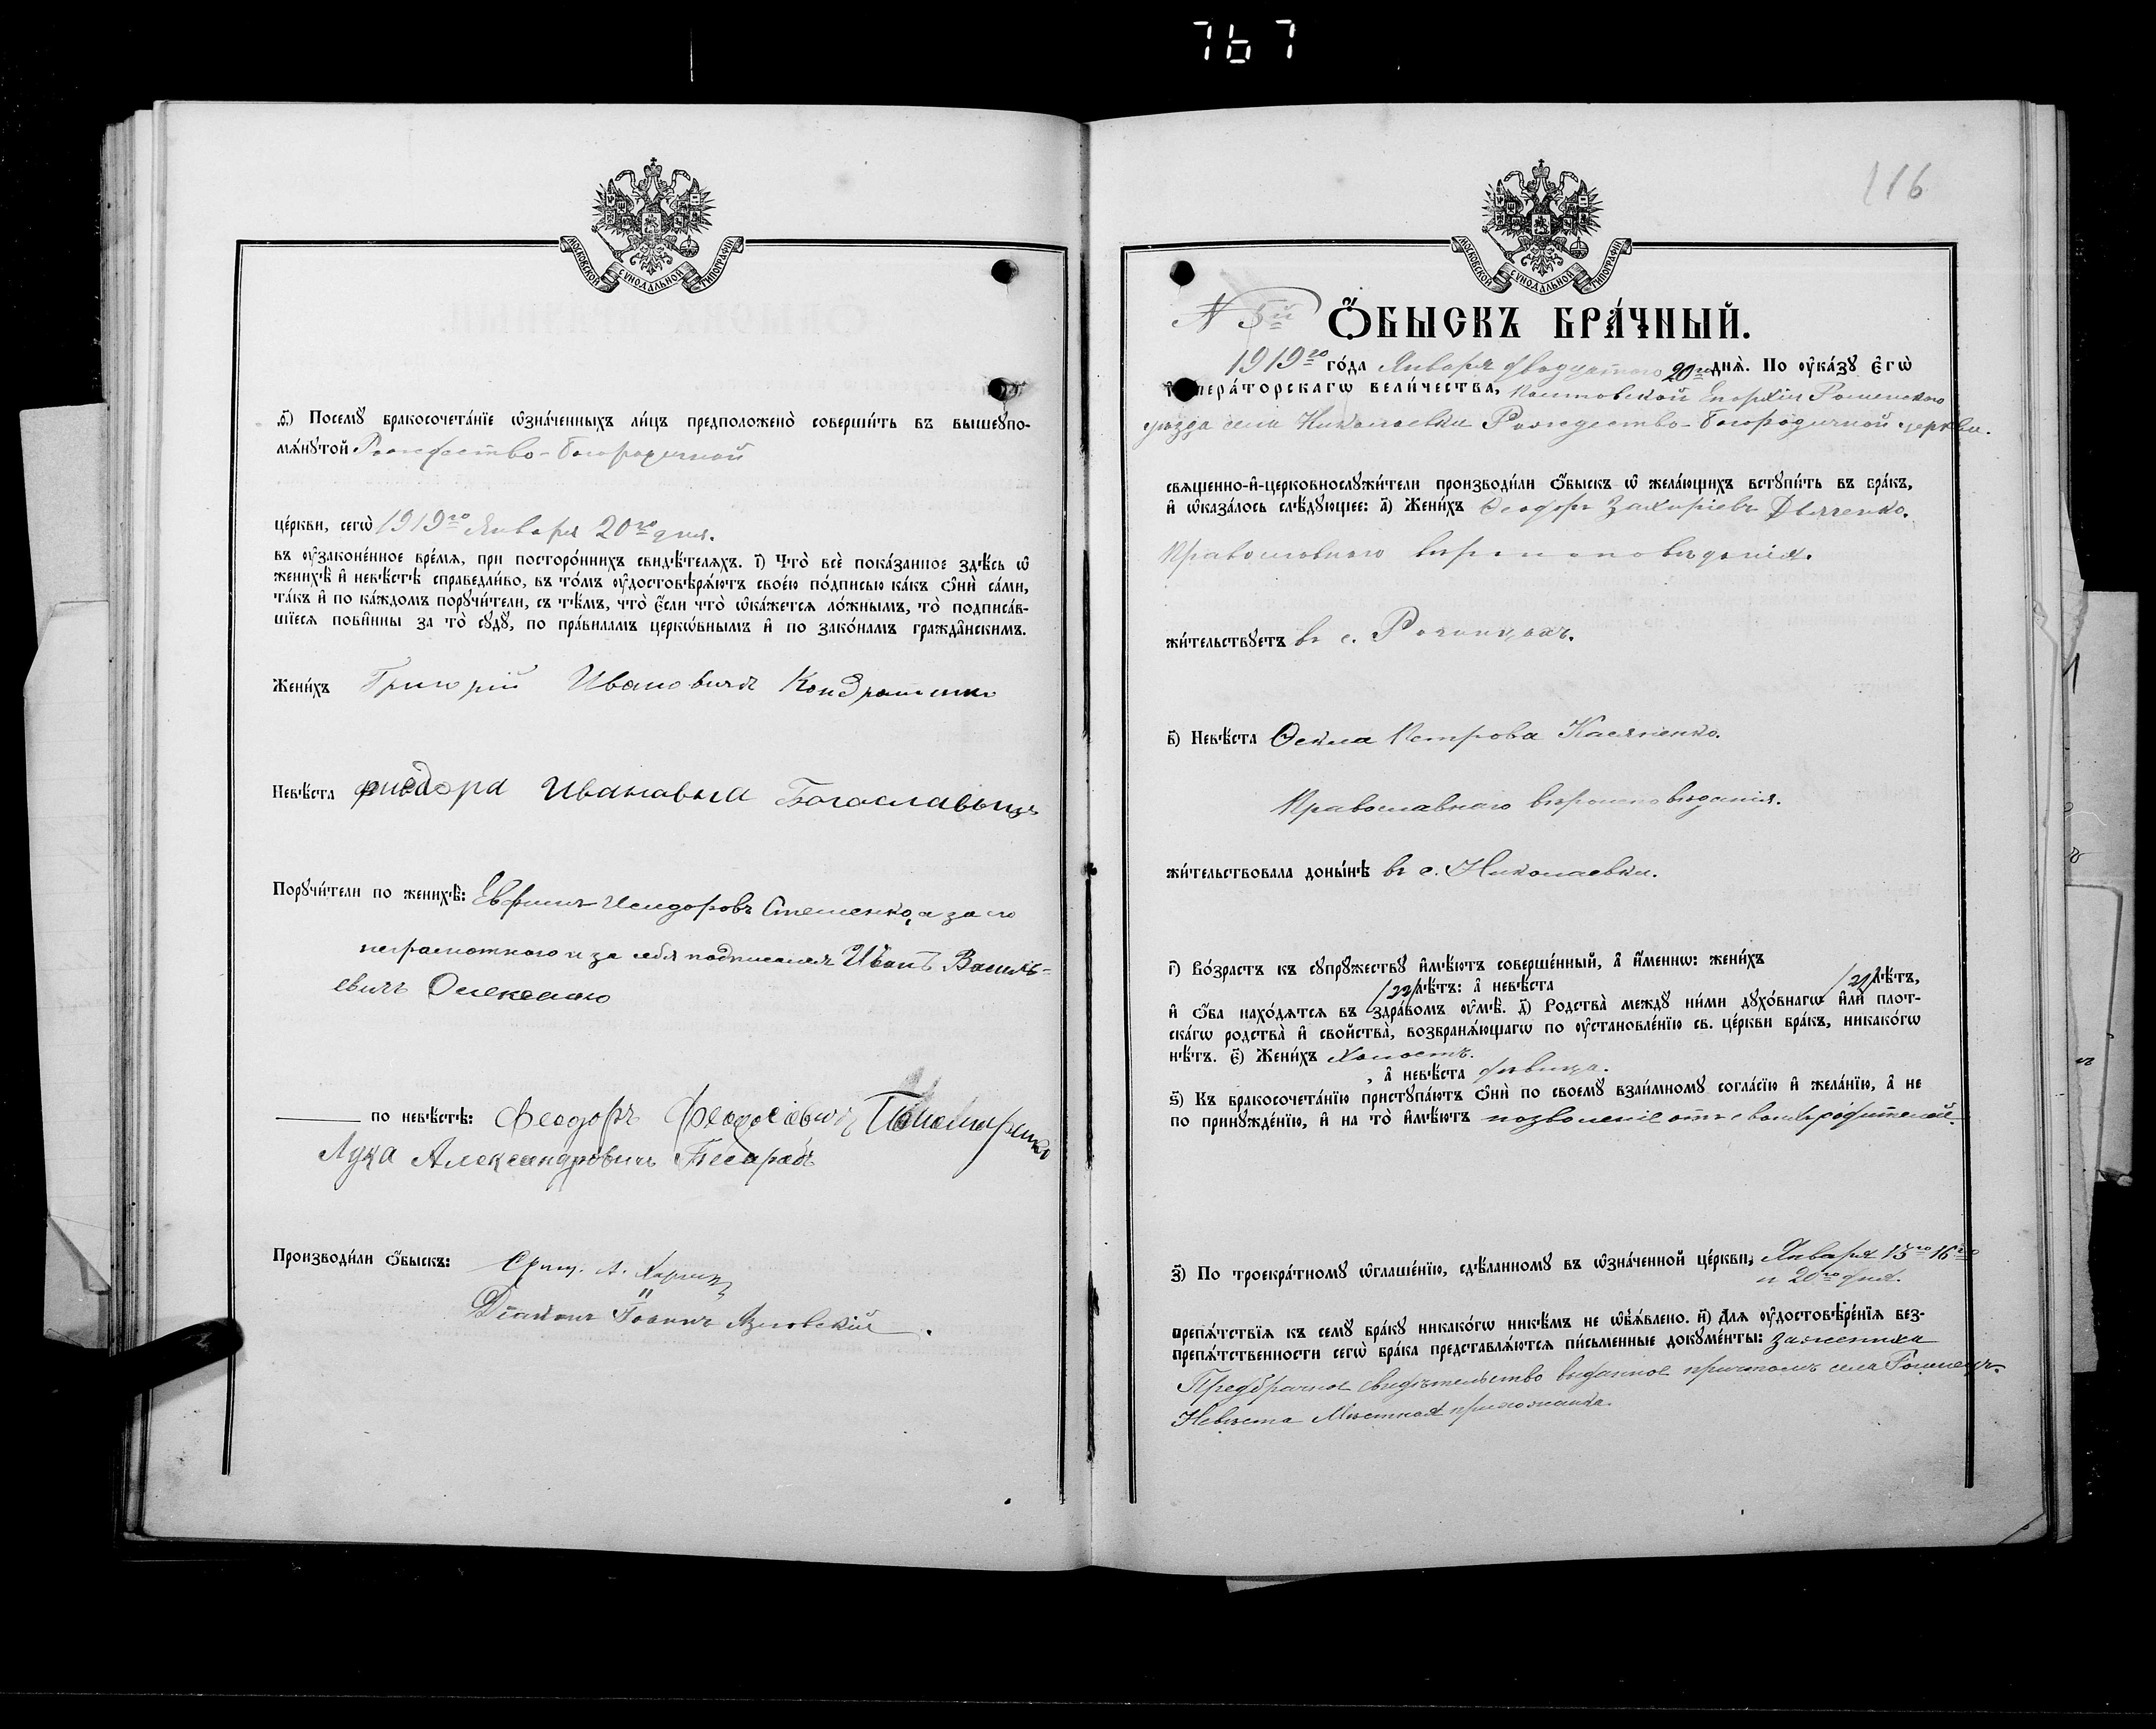 767
МОСКОВСКОЙ СУНОДАЛЬНОЙ ТИПОГРАФІИ
ѳ҃) Посемꙋ̀ бракосочета́нїе ѡ҆зна́ченныхъ ли́цъ предположено̀ соверши́ть въ вышеꙋпо-
мѧ́нꙋтой Рождество-Богородичной
це́ркви, сегѡ̀ 1919го Января 20го дня.
въ ᲂу҆зако́нённое вре́мѧ, при посторо́ннихъ свидѣ́телѧхъ. і҃) Что̀ всѐ пока́занное здѣ́сь ѡ҆
женихѣ̀ и҆ невѣ́стѣ справедли́во, въ то́мъ ᲂу҆достовѣрѧ́ютъ свое́ю по́дписью ка́къ ѻ҆нѝ са́ми,
та́къ и҆ по ка́ждомъ порꙋчи́тели, съ тѣ́мъ, что̀ є҆́сли что̀ ѡ҆ка́жетсѧ ло́жнымъ, то̀ подписа́в-
шїесѧ пови́нны за то̀ сꙋдꙋ̀, по пра́виламъ церкѡ́внымъ и҆ по зако́намъ гражда̂нскимъ.
Жени́хъ Григорій Ивановичъ Кондратенко
Невѣ́ста Ивановна
Порꙋчи́тели по женихѣ̀: Исидоровъ Стешенко, а за его
неграмотного и за себя подписался Иванъ Василь-
евичъ
по невѣ́стѣ: Феодоръ Феодосіевичъ
Лука Александровичъ
Производи́ли ѻ҆́быскъ:
Діаконъ Іоаннъ
116
МОСКОВСКОЙ СУНОДАЛЬНОЙ ТИПОГРАФІИ
N 5й Ѻ҆́БЫСКЪ БРА́ЧНЫЙ.
1919го го́да Января двадцатого 20го днѧ̀. По ᲂу҆ка́зꙋ є҆гѡ̀
и҆мпера́торскагѡ вели́чества, Полтовской Епархіи Роменского
уезда села Николаевки Рождество-Богородичной церкви.
свѧщенно-и҆-церковнослꙋжи́тели производи́ли ѻ҆́быскъ ѡ҆ жела́ющихъ встꙋпи́ть въ бра́къ,
и҆ ѡ҆каза́лось слѣ́дꙋющее: а҃) Жени́хъ Феодоръ Захаріевъ Дяченко.
Православного вероисповѣданія.
жи́тельствꙋетъ въ с.
в҃) Невѣ́ста Ѳекла Петрова Касяненко.
Православнаго вѣроисповѣданія.
жи́тельствовала доны́нѣ въ с. Николаевки.
г҃) Во́зрастъ къ сꙋпрꙋ́жествꙋ и҆мѣ́ютъ соверше́нный, а҆ и҆́меннѡ: жени́хъ
22 лѣ́тъ: а҆ невѣ́ста 21 лѣ́тъ,
и҆ ѻ҆́ба нахо́дѧтсѧ въ здра́вомъ ᲂу҆мѣ̀. д҃) Родства̀ междꙋ̀ ни́ми дꙋхо́внагѡ и҆лѝ плот-
ска́гѡ родства̀ и҆ свойства̀, возбранѧ́ющагѡ по ᲂу҆становле́нїю св. це́ркви бра́къ, никако́гѡ
нѣ́тъ. є҃) Жени́хъ Холостъ.
, а҆ невѣ́ста дѣвица.
ѕ҃) Къ бракосочета́нїю пристꙋпа́ютъ ѻ҆нѝ по своемꙋ̀ взаи́мномꙋ согла́сїю и҆ жела́нїю, а҆ не
по принꙋжде́нїю, и҆ на то̀ и҆мѣ́ютъ позволеніе отъ своихъ родителей.
з҃) По троекра́тномꙋ ѡ҆глаше́нїю, сдѣ́ланномꙋ въ ѡ҆зна́ченной це́ркви, Января 13го 16го
и 20го дня.
препѧ́тствїѧ къ семꙋ̀ бра́кꙋ никако́гѡ никѣ́мъ не ѡ҆б̾ѧ́влено. и҃) Длѧ ᲂу҆достовѣре́нїѧ без-
препѧ́тственности сегѡ̀ бра́ка представлѧ́ютсѧ пи́сьменные докꙋме́нты: За жениха
Предбрачное свидѣтельство выданное причтомъ села
Невѣста Мѣстная прихожанка.